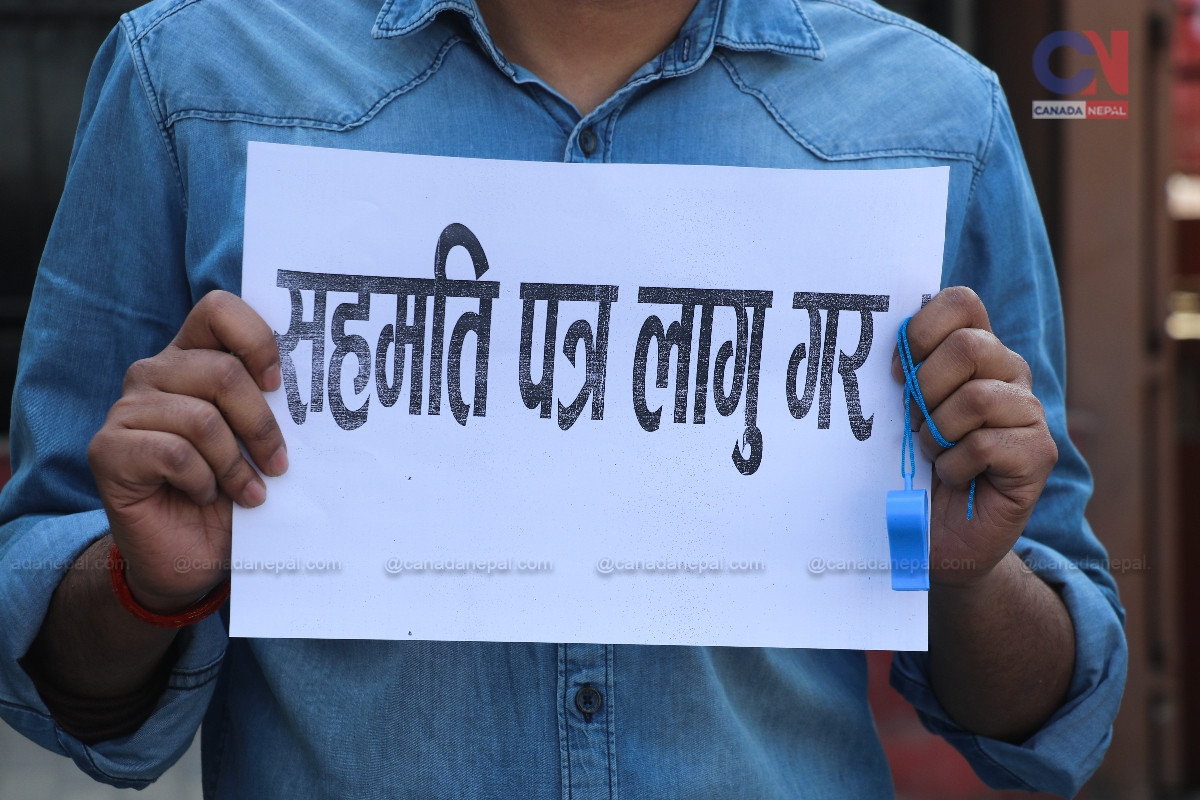 CN
CANADA NEPAL
सहमति पत्र लागु गर
adanepal.com @canadanepal.com @canadanepal.com @canadanepal.com @canadanepal.com @canadanepal.com